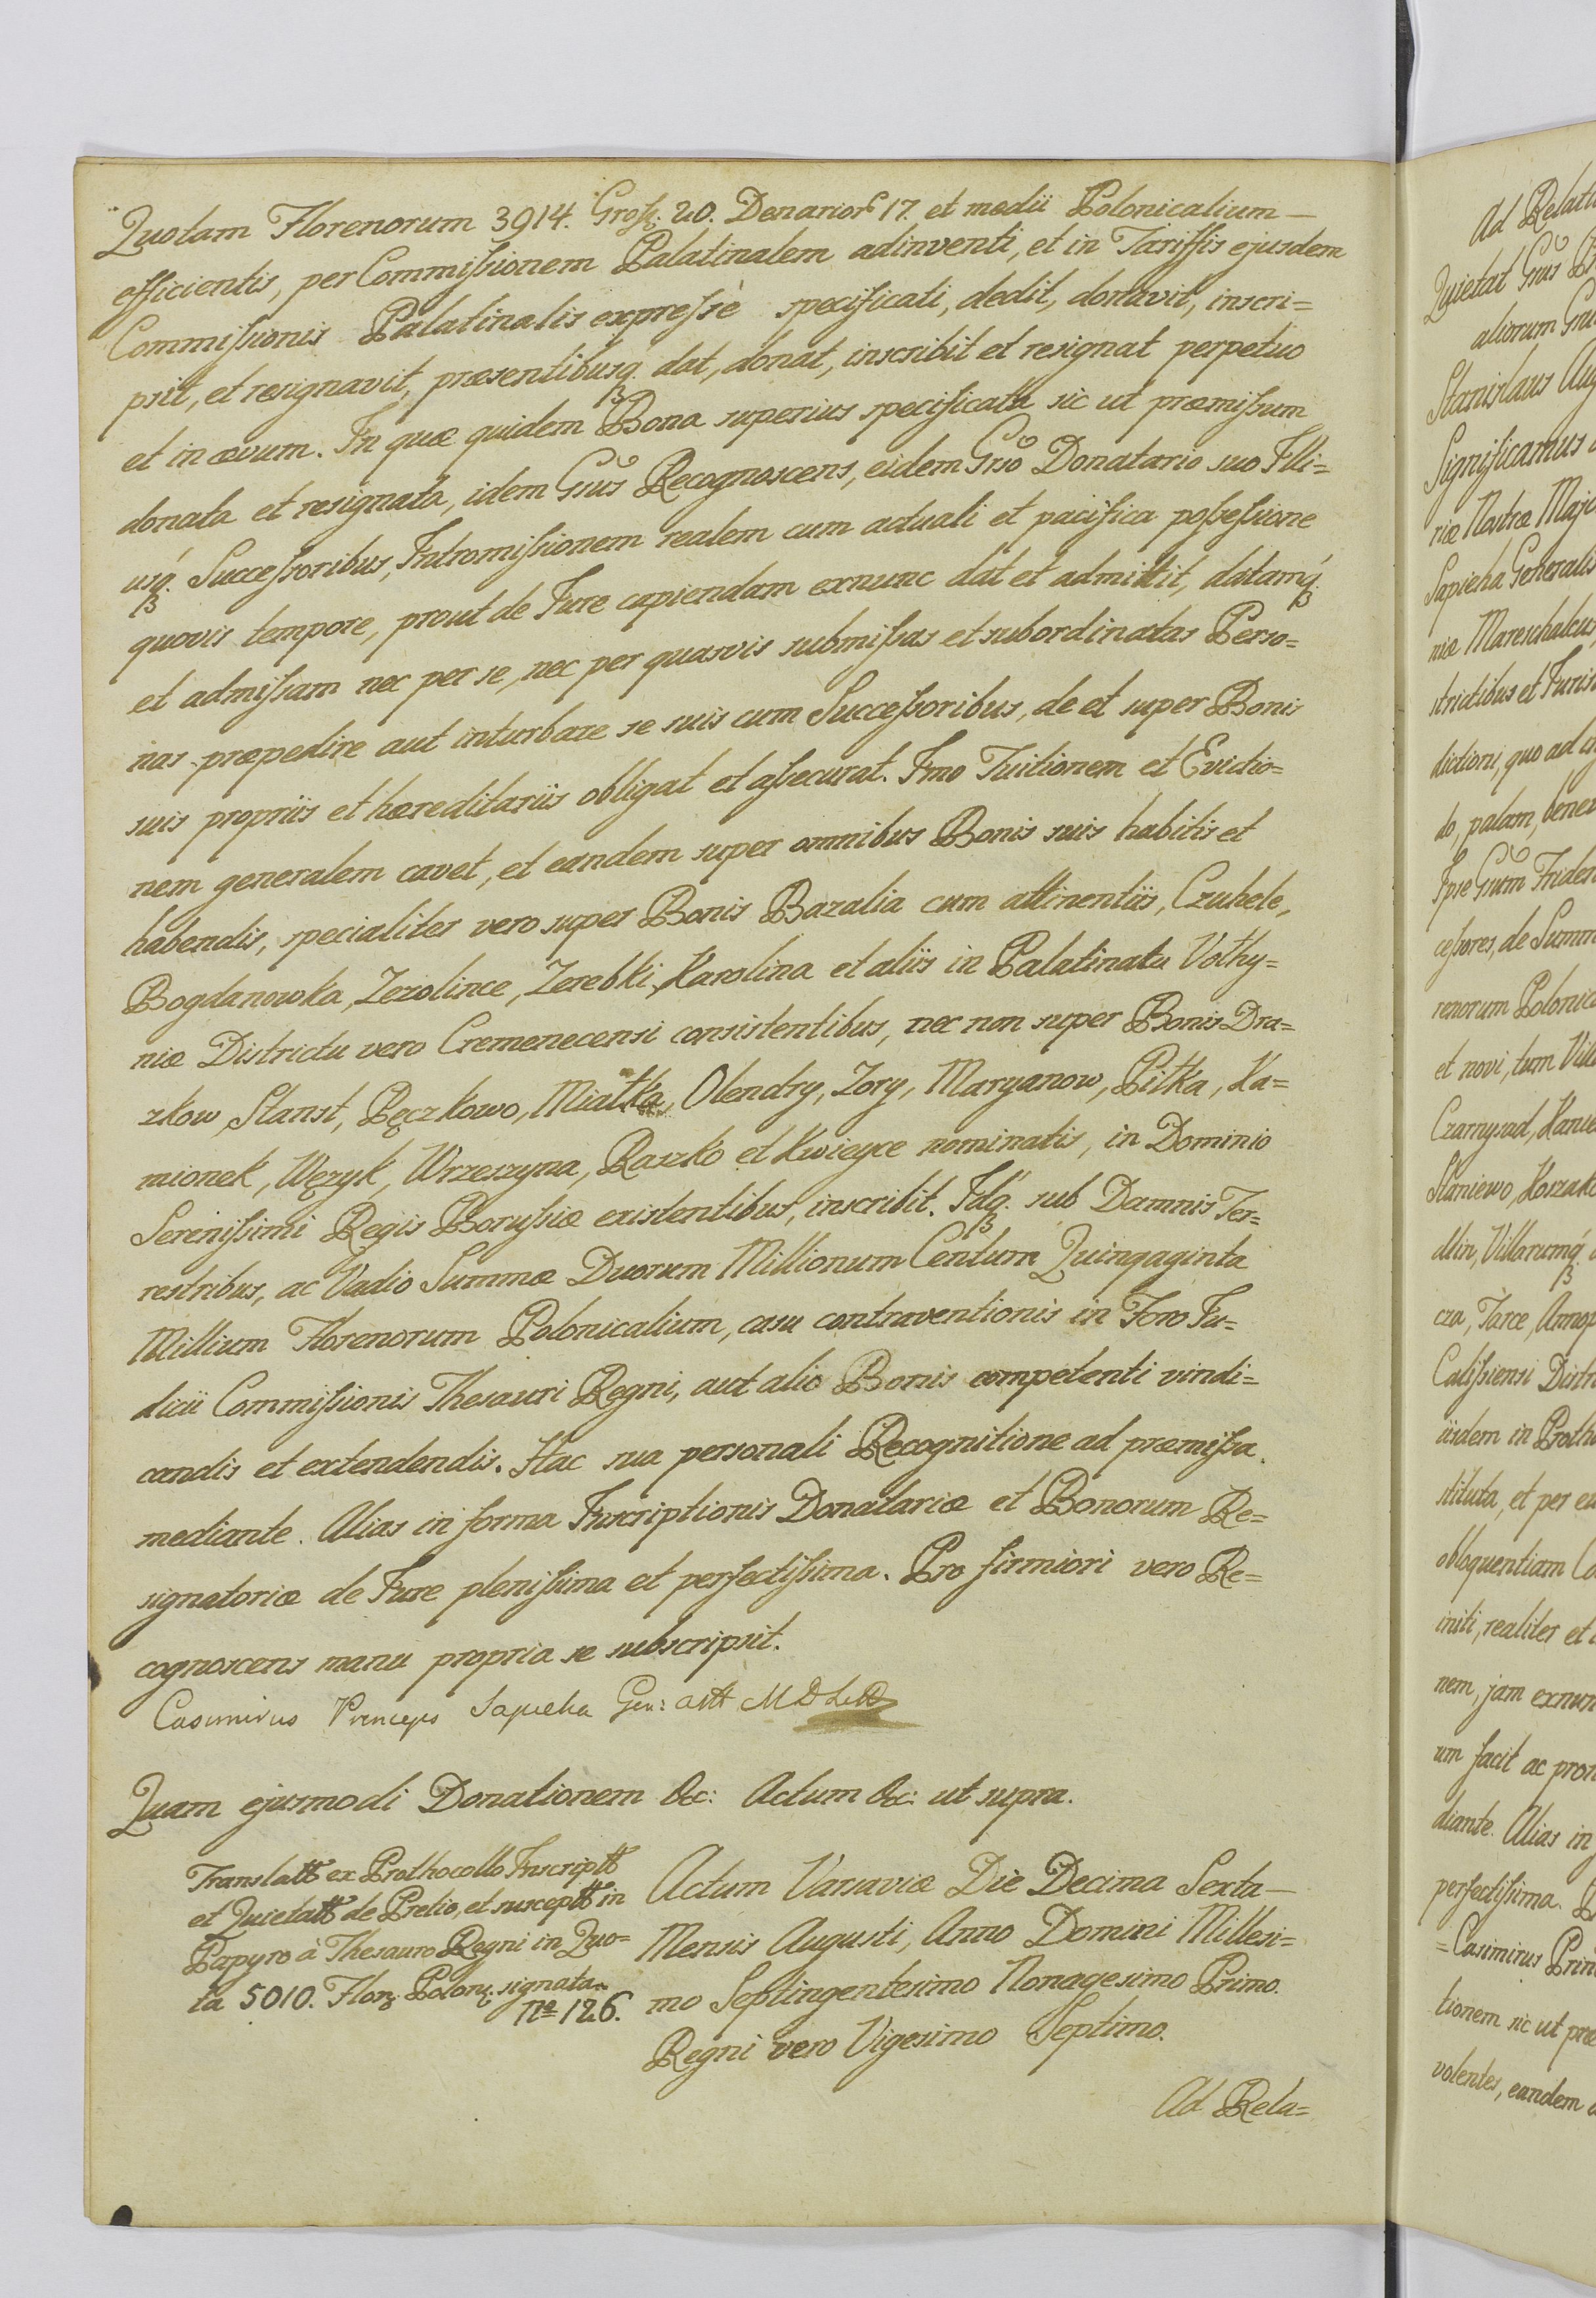 Quotam Florenorum 3914. Gross: 20. Denarior 17. et medii Polonicalium —
efficientis, per Commissionem Palatinalem adinventi, et in Tariffis ejusdem
Commissionis Palatinalis expressè specificati, dedit, donavit, inscri=
psit, et resignavit, præsentibusq. dat, donat, inscribit et resignat perpetuo
et in ævum. In quæ quidem Bona superius specificata sic ut præmissum
donata et resignata, idem Gsus Recognoscens, eidem Gso Donatario suo Illi=
usq. Successoribus, Intromissionem realem cum actuali et pacifica possessione
quovis tempore, prout de Jure capiendam exnunc dat et admittit, datamq.
et admissam nec per se, nec per quasvis submissas et subordinatas Perso=
nas præpedire aut inturbare se suis cum Successoribus, de et super Bonis
suis propriis et hæreditariis obligat et assecurat. Imo Tuitionem et Evictio=
nem generalem cavet, et eandem super omnibus Bonis suis habitis et
habendis, specialiter vero super Bonis Bazalia cum attinentiis, Czuhele,
Bogdanowka, Zezolince, Zerebki, Karolina et aliis in Palatinatu Volhy=
niæ Districtu vero Cremenecensi consistentibus, nec non super Bonis Dra=
zkow, Stanst, Pęczkowo, Miałka, Olendry, Zory, Maryanow, Piłka, Ka=
mionek, Węzyk, Wrzeszyna, Raszko et Kwieyce nominatis, in Dominio
Serenissimi Regis Borussiæ existentibus, inscribit. Idq. sub Damnis Ter=
restribus, ac Vadio Summæ Duorum Millionum Centum Quinqaginta
Millium Florenorum Polonicalium, casu contraventionis in Foro Ju=
dicii Commissionis Thesauri Regni, aut alio Bonis competenti vindi=
candis et extendendis. Hac sua personali Recognitione ad præmissa
mediante. Alias in forma Inscriptionis Donatariæ et Bonorum Re=
signatoriæ de Jure plenissima et perfectissima. Pro firmiori vero Re=
cognoscens manu propria se subscripsit.
Casimirus Princeps Sapieha Gen: Artt M D L
Quam ejusmodi Donationem &c: Actum &c: ut supra.
Translatt ex Prothocollo Inscriptt
et Quietatt de Pretio, et susceptt in
Papyro à Thesauro Regni in Quo=
ta 5010. Flor: Polon: signata.
No 126.
Actum Varsaviæ Die Decima Sexta —
Mensis Augusti, Anno Domini Millesi=
mo Septingentesimo Nonagesimo Primo.
Regni vero Vigesimo Septimo.
Ad Rela=
Ad Relati
Quietat Gsus
aliorum
Stanislaus Aug
Significamus
riæ Nostræ Maj
Sapieha Generalis
niæ Mareschalcus
strictibus et Juris
dictioni, quo ad
do, palam, bene
Ipse Gsum
cessores, de Summ
renorum Polonic
et novi, tum Vill
Czarnysad,
Staniewo, Koszak
Villarumq.
cza, Tarce, Annop
Calissiensi Distr
iisdem in Proth
stituta, et per
obloquentiam
initi, realiter et
nem, jam exnun
um facit ac pro
diante. Alias in
perfectissima.
=Casimirus Prin
tionem sic ut præ
volentes, eandem